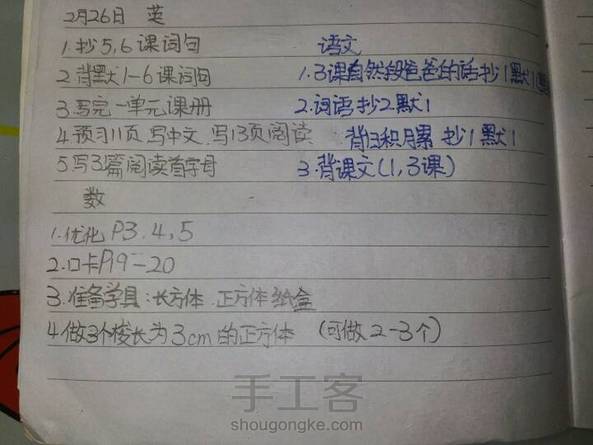 2月26日 英
1.抄5,6课词句
2.背默1-6课词句
3.写完一单元课册
4.预习11页,写中文,写13页阅读
5.写3篇阅读首字母
语文
1.3课自然段爸爸的话抄1默1
2.词语抄2.默1
背日积月累 抄1默1
3.背课文(1,3课)
数
1.优化P3.4,5
2.口卡P19-20
3.准备学具:长方体.正方体纸盒
4.做3个棱长为3cm的正方体 (可做2-3个)
手工客
shougongke.com